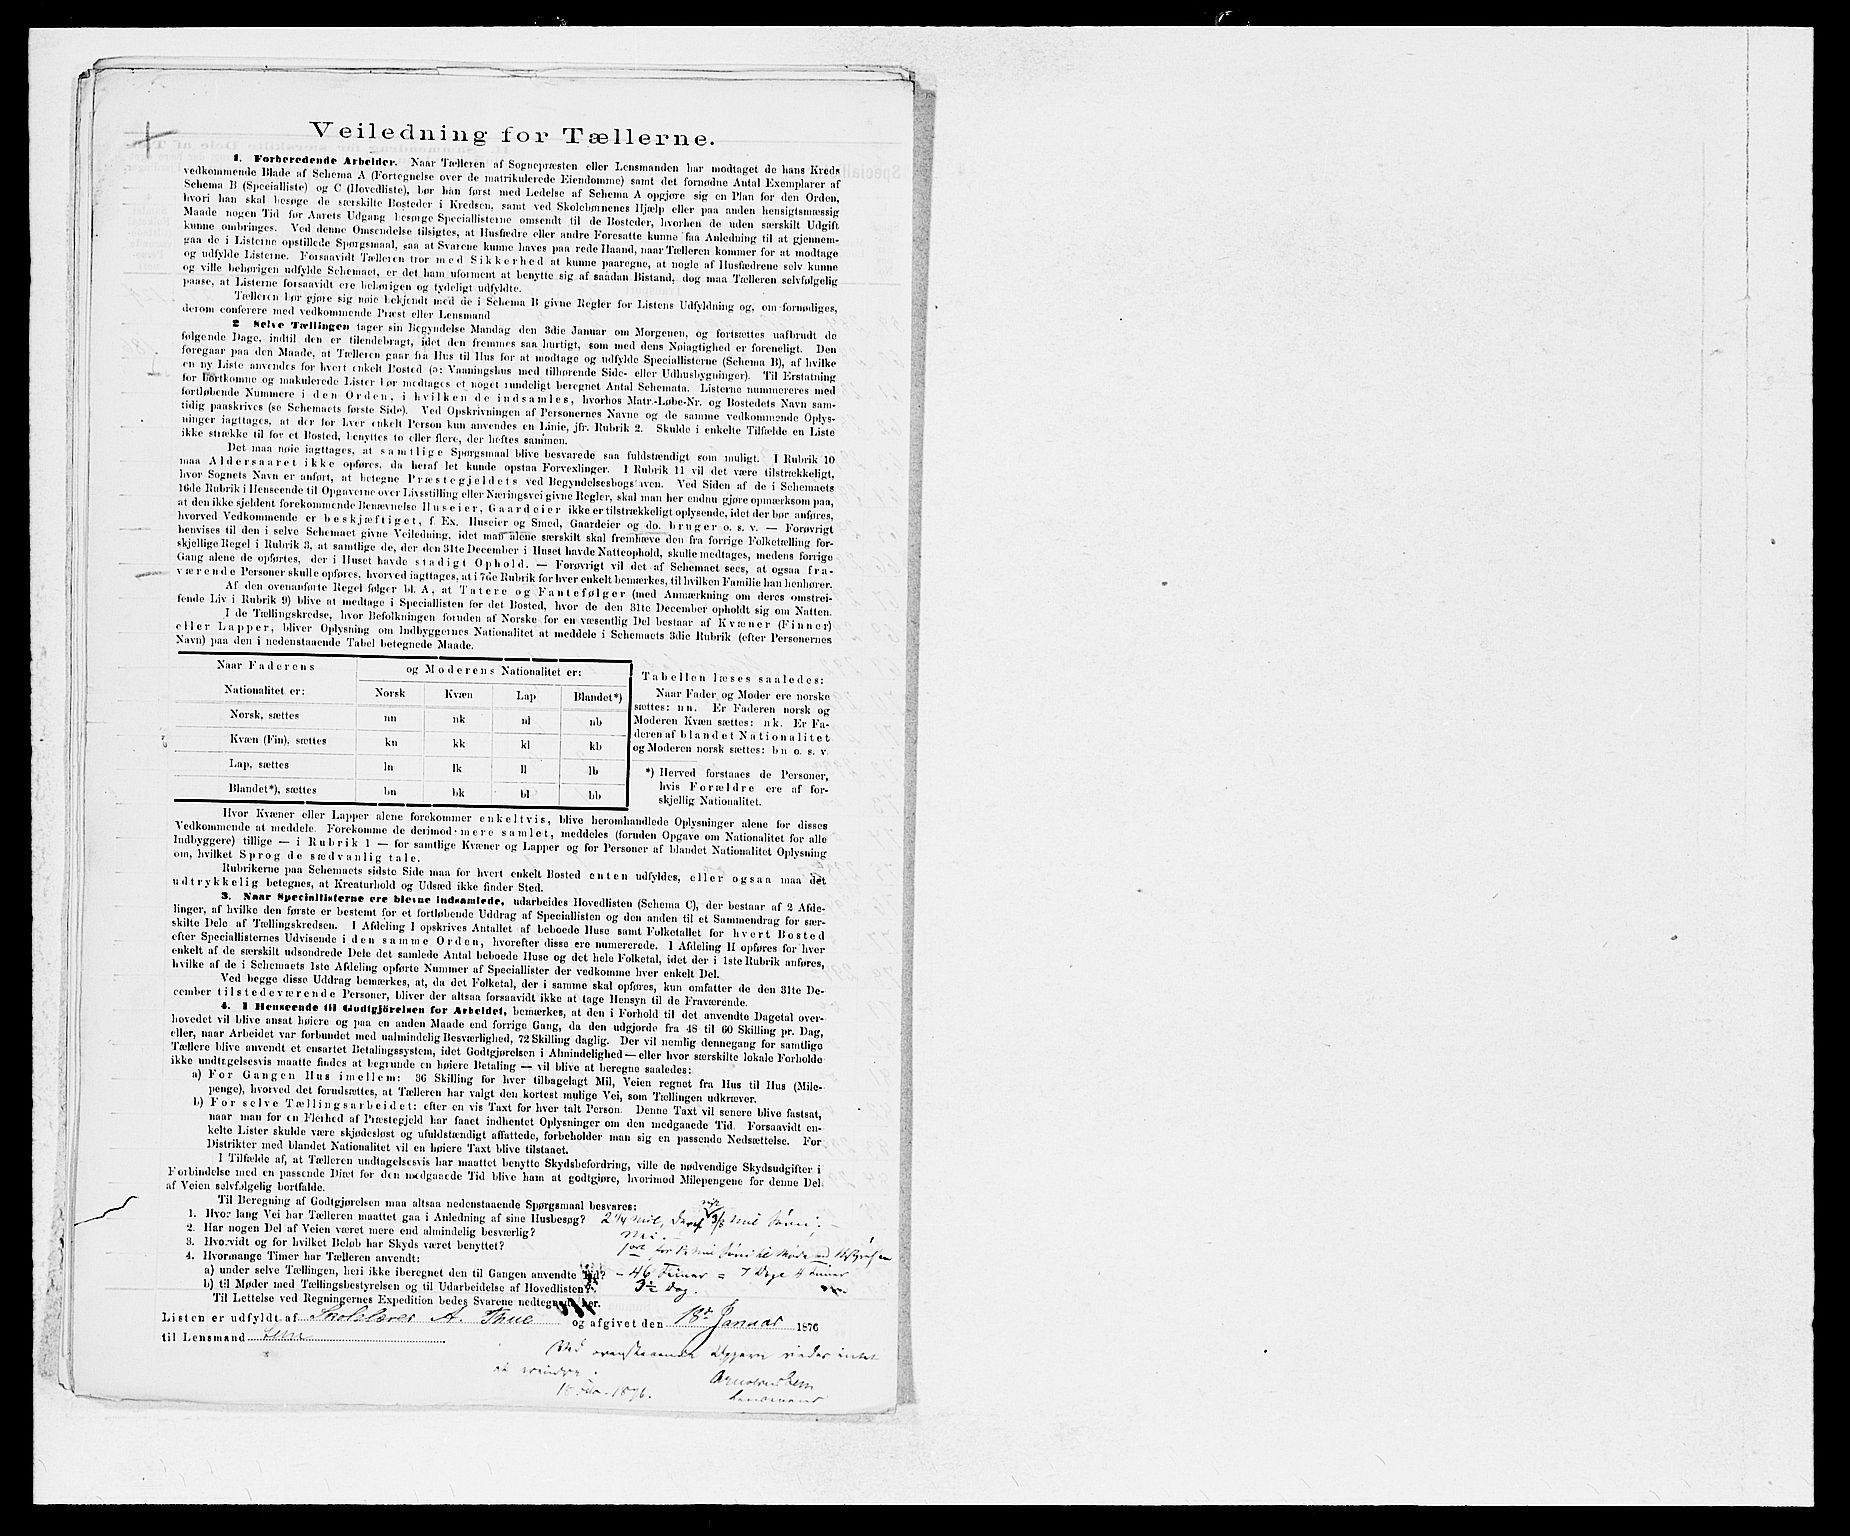 Veiledning for Tællerne.
1. Forberedende Arbeider. Naar Tælleren af Sognepræsten eller Lensmanden har modtaget de hans Kreds
vedkommende Blade af Schema A (Fortegnelse over de matrikulerede Eiendomme) samt det fornødne Antal Exemplarer af
Schema B (Specialliste) og C (Hovedliste), bør han først med Ledelse af Schema A opgjøre sig en Plan for den Orden,
hvori han skal besøge de særskilte Bosteder i Kredsen, samt ved Skolebørnenes Hjælp eller paa anden hensigtsmæssig
Maade nogen Tid før Aarets Udgang besørge Speciallisterne omsendt til de Bosteder, hvorhen de uden særskilt Udgift
kunne ombringes. Ved denne Omsendelse tilsigtes, at Husfædre eller andre Foresatte kunne faa Anledning til at gjennem-
gaa de i Listerne opstillede Spørgsmaal, saa at Svarene kunne haves paa rede Haand, naar Tælleren kommer for at modtage
og udfylde Listerne. Forsaavidt Tælleren tror med Sikkerhed at kunne paaregne, at nogle af Husfædrene selv kunne
og ville behørigen udfylde Schemaet, er det ham uforment at benytte sig af saadan Bistand, dog maa Tælleren selvfølgelig
paase, at Listerne forsaavidt ere behørigen og tydeligt udfyldte.
Tælleren bør gjøre sig nøie bekjendt med de i Schema B givne Regler for Listens Udfyldning og, om fornødiges,
derom conferere med vedkommende Præst eller Lensmand
2 Selve Tællingen tager sin Begyndelse Mandag den 3die Januar om Morgenen, og fortsættes uafbrudt de
følgende Dage, indtil den er tilendebragt, idet den fremmes saa hurtigt, som med dens Nøiagtighed er foreneligt. Den
foregaar paa den Maade, at Tælleren gaar fra Hus til Hus for at modtage og udfylde Speciallisterne (Schema B), af hvilke
en ny Liste anvendes for hvert enkelt Bosted (ɔ: Vaaningshus med tilhørende Side- eller Udhusbygninger). Til Erstatning
for bortkomne og makulerede Lister bør medtages et noget rundeligt beregnet Antal Schemata. Listerne nummereres med
fortløbende Nummere i den Orden, i hvilken de indsamles, hvorhos Matr.-Løbe-Nr. og Bostedets Navn sam-
tidig paaskrives (se Schemaets første Side). Ved Opskrivningen af Personernes Navne og de samme vedkommende Oplys-
ninger iagttages, at der for hver enkelt Person kun anvendes en Linie, jfr. Rubrik 2. Skulde i enkelte Tilfælde en Liste
ikke strække til for et Bosted, benyttes to eller flere, der heftes sammen.
Det maa nøie iagttages, at samtlige Spørgsmaal blive besvarede saa fuldstændigt som muligt. I Rubrik 10
maa Aldersaaret ikke opføres, da heraf let kunde opstaa Forvexlinger. I Rubrik 11 vil det være tilstrækkeligt,
hvor Sognets Navn er anført, at betegne Præstegjeldets ved Begyndelsesbogstaven. Ved Siden af de i Schemaets
16de Rubrik i Henseende til Opgaverne over Livsstilling eller Næringsvei givne Regler, skal man her endnu gjøre opmærksom paa,
at den ikke sjeldent forekommende Benævnelse Huseier, Gaardeier ikke er tilstrækkeligt oplysende, idet der bør anføres,
hvorved Vedkommende er beskjæftiget, f. Ex. Huseier og Smed, Gaardeier og do. bruger o. s. v. — Forøvrigt
henvises til den i selve Schemaet givne Veiledning, idet man alene særskilt skal fremhæve den fra forrige Folketælling for-
skjellige Regel i Rubrik 3, at samtlige de, der den 31te December i Huset havde Natteophold, skulle medtages, medens forrige
Gang alene de opførtes, der i Huset havde stadigt Ophold. — Forøvrigt vil det af Schemaet sees, at ogsaa fra-
værende Personer skulle opføres, hvorved iagttages, at i 7de Rubrik for hver enkelt bemærkes, til hvilken Familie han henhører.
Af den ovenanførte Regel følger bl. A., at Tatere og Fantefølger (med Anmærkning om deres omstrei-
fende Liv i Rubrik 9) blive at medtage i Speciallisten for det Bosted, hvor de den 31te December opholdt sig om Natten.
I de Tællingskredse, hvor Befolkningen foruden af Norske for en væsentlig Del bestaar af Kvæner (Finner)
eller Lapper, bliver Oplysning om Indbyggernes Nationalitet at meddele i Schemaets 3die Rubrik (efter Personernes
Navn) paa den i nedenstaaende Tabel betegnede Maade.
Naar Faderens og Moderens Nationalitet er:
Nationalitet er: Norsk Kvæn Lap Blandet*)
Norsk, sættes nn nk nl nb
Kvæn (Fin), sættes kn kk kl kb
Lap, sættes ln lk ll lb
Blandet*), sættes bn bk bl bb
Tabellen læses saaledes:
Naar Fader og Moder ere norske
sættes: nn. Er Faderen norsk og
Moderen Kvæn sættes: nk. Er Fa-
deren af blandet Nationalitet
og Moderen norsk sættes: bn o. s. v.
*) Herved forstaaes de Personer,
hvis Forældre ere af for-
skjellig Nationalitet.
Hvor Kvæner eller Lapper alene forekommer enkeltvis, blive heromhandlede Oplysninger alene for disses
Vedkommende at meddele. Forekomme de derimod mere samlet, meddeles (foruden Opgave om Nationalitet for alle
Indbyggere) tillige — i Rubrik 1 — for samtlige Kvæner og Lapper og for Personer af blandet Nationalitet Oplysning
om, hvilket Sprog de sædvanlig tale.
Rubrikerne paa Schemaets sidste Side maa for hvert enkelt Bosted enten udfyldes, eller ogsaa maa det
udtrykkelig betegnes, at Kreaturhold og Udsæd ikke finder Sted.
3. Naar Speciallisterne ere blevne indsamlede, udarbeides Hovedlisten (Schema C), der bestaar af 2 Afde-
linger, af hvilke den første er bestemt for et fortløbende Uddrag af Speciallisten og den anden til et Sammendrag for sær-
skilte Dele af Tællingskredsen. I Afdeling I opskrives Antallet af beboede Huse samt Folketallet for hvert Bosted
efter Speciallisternes Udvisende i den samme Orden, hvorefter disse ere numererede. I Afdeling II opføres for hver
enkelt af de særskilt udsondrede Dele det samlede Antal beboede Huse og det hele Folketal, idet der i 1ste Rubrik anføres,
hvilke af de i Schemaets 1ste Afdeling opførte Nummer af Speciallister der vedkomme hver enkelt Del.
Ved begge disse Uddrag bemærkes, at, da det Folketal, der i samme skal opføres, kun omfatter de den 31te De-
cember tilstedeværende Personer, bliver der altsaa forsaavidt ikke at tage Hensyn til de Fraværende.
4. I Henseende til Godtgjörelsen for Arbeidet, bemærkes, at den i Forhold til det anvendte Dagetal over-
hovedet vil blive ansat høiere og paa en anden Maade end forrige Gang, da den udgjorde fra 48 til 60 Skilling pr. Dag,
eller, naar Arbeidet var forbundet med ualmindelig Besværlighed, 72 Skilling daglig. Der vil nemlig dennegang for samtlige
Tællere blive anvendt et ensartet Betalingssystem, idet Godtgjørelsen i Almindelighed — eller hvor særskilte lokale Forholde
ikke undtagelsesvis maatte findes at begrunde en høiere Betaling — vil blive at beregne saaledes:
a) For Gangen Hus imellem: 36 Skilling for hver tilbagelagt Mil, Veien regnet fra Hus til Hus (Mile-
penge), hvorved det forudsættes, at Tælleren har valgt den kortest mulige Vei, som Tællingen udkræver.
b) For selve Tællingsarbeidet: efter en vis Taxt for hver talt Person. Denne Taxt vil senere blive fastsat,
naar man for en Flerhed af Præstegjeld har faaet indhentet Oplysninger om den medgaaede Tid. Forsaavidt en-
kelte Lister skulde være skjødesløst og ufuldstændigt affattede, forbeholder man sig en passende Nedsættelse. For
Distrikter med blandet Nationalitet vil en høiere Taxt blive tilstaaet.
I Tilfælde af, at Tælleren undtagelsesvis har maattet benytte Skydsbefordring, ville de nødvendige Skydsudgifter i
Forbindelse med en passende Diæt for den medgaaede Tid blive ham at godtgjøre, hvorimod Milepengene for denne Del
af Veien selvfølgelig bortfalde.
Til Beregning af Godtgjørelsen maa altsaa nedenstaaende Spørgsmaal besvares:
1. Hvor lang Vei har Tælleren maattet gaa i Anledning af sine Husbesøg? 2 1/4 Mil, deraf 3/8 Mil
2. Har nogen Del af Veien været mere end almindelig besværlig?
3. Hvorvidt og for hvilket Beløb har Skyds været benyttet?
4. Hvormange Timer har Tælleren anvendt:
a) under selve Tællingen, heri ikke iberegnet den til Gangen anvendte Tid? - 46 Timer = 7 Dage 4 Timer
b) til Møder med Tællingsbestyrelsen og til Udarbeidelse af Hovedlisten? 3½ Dag.
Til Lettelse ved Regningernes Expedition bedes Svarene nedtegnede her.
Listen er udfyldt af Skolelærer A. Thue og afgivet den 18de Januar 1876
til Lensmand Lem
Ved ovenstaaende Opgave findes intet
at erindre.
1876. Lem
Lensmand